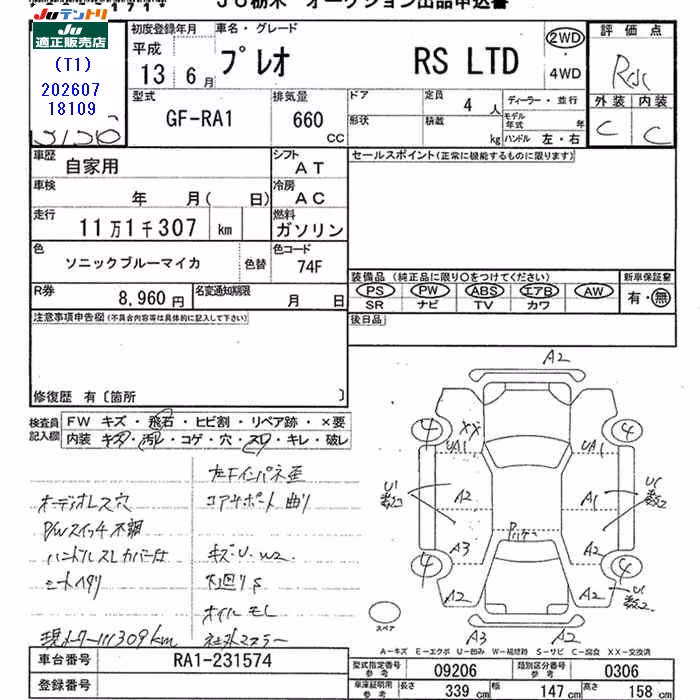 JU栃木 オークション出品申込書
JUテントリ
適正販売店
(T1)
202607
18109
初度登録年月
平成
13 6月
車名・グレード
プレオ RS LTD
2WD
4WD
評価点
外装 内装
C C
型式
GF-RA1
排気量
660
CC
ドア
形状
定員 4人
積載 kg
ディーラー・並行
モデル年式 年
ハンドル 左・右
車歴
自家用
シフト
AT
セールスポイント(正常に機能するものに限ります)
車検
年 月( 日)
冷房
AC
走行
11万1千307 km
燃料
ガソリン
色
ソニックブルーマイカ
色替
色コード
74F
装備品 (純正品に限り○をつけてください)
新車保証書
PS PW ABS エアB AW
SR ナビ TV カワ
有・無
R券
8,960円
名変通知期限
月 日
後日品
注意事項申告欄(不具合内容等は具体的に記入して下さい)
修復歴 有〔箇所 〕
検査員記入欄
FW キズ・飛石・ヒビ割・リペア跡・×要
内装 キズ・汚レ・コゲ・穴・スレ・キレ・破レ
左Fインパネ歪
オーディオレス穴
コアサポート曲り
P/Wスイッチ不調
ハンドルスレカバー付
キズ・U・W2.
シートヘタリ
下回りS
オイルモレ
現メーター111309km
社外マフラー
A2
4 XX 4
UA1 UA1
A2 A1
A3 A2
4 4
A2 A2
A3 A2
スペア
A-キズ E-エクボ U-凹み W-補修跡 S-サビ C-腐食 XX-交換済
車台番号
RA1-231574
型式指定番号 参考
09206
類別区分番号 参考
0306
登録番号
車庫証明用 参考
長さ 339 cm
幅 147 cm
高さ 158 cm